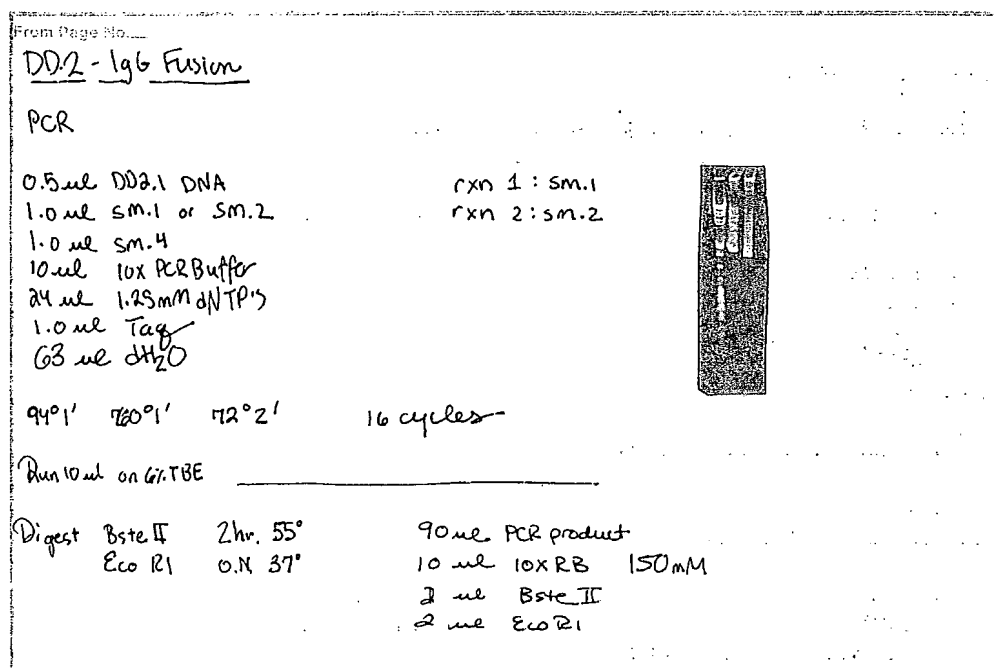 From Page No.
DD.2 - IgG Fusion
PCR
0.5 ul DD2.1 DNA
1.0 ul sm.1 or sm.2
1.0 ul sm.4
10 ul 10x PCR Buffer
24 ul 1.25mM dNTP's
1.0 ul Taq
63 ul dH2O
rxn 1 : sm.1
rxn 2 : sm.2
94° 1' 60° 1' 72° 2' 16 cycles
Run 10 ul on 6% TBE
Digest Bste II 2hr. 55°
Eco R1 O.N 37°
90 ul PCR product
10 ul 10x RB 150mM
2 ul Bste II
2 ul Eco R1